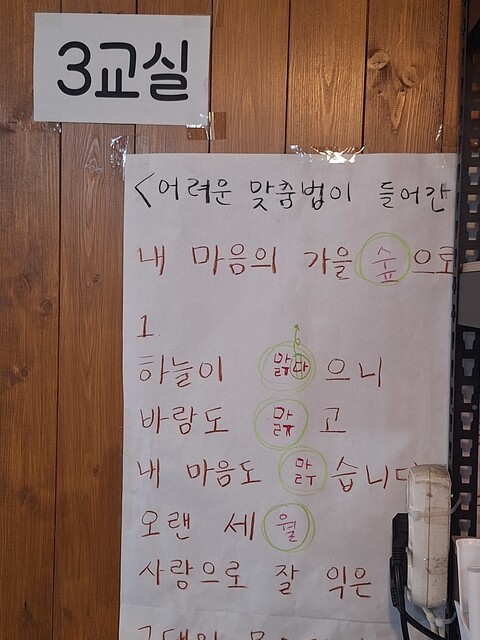 3교실
<어려운 맞춤법이 들어간
내 마음의 가을 숲으로
1.
하늘이 맑으니
바람도 맑고
내 마음도 맑습니다
오랜 세월
사랑으로 잘 익은